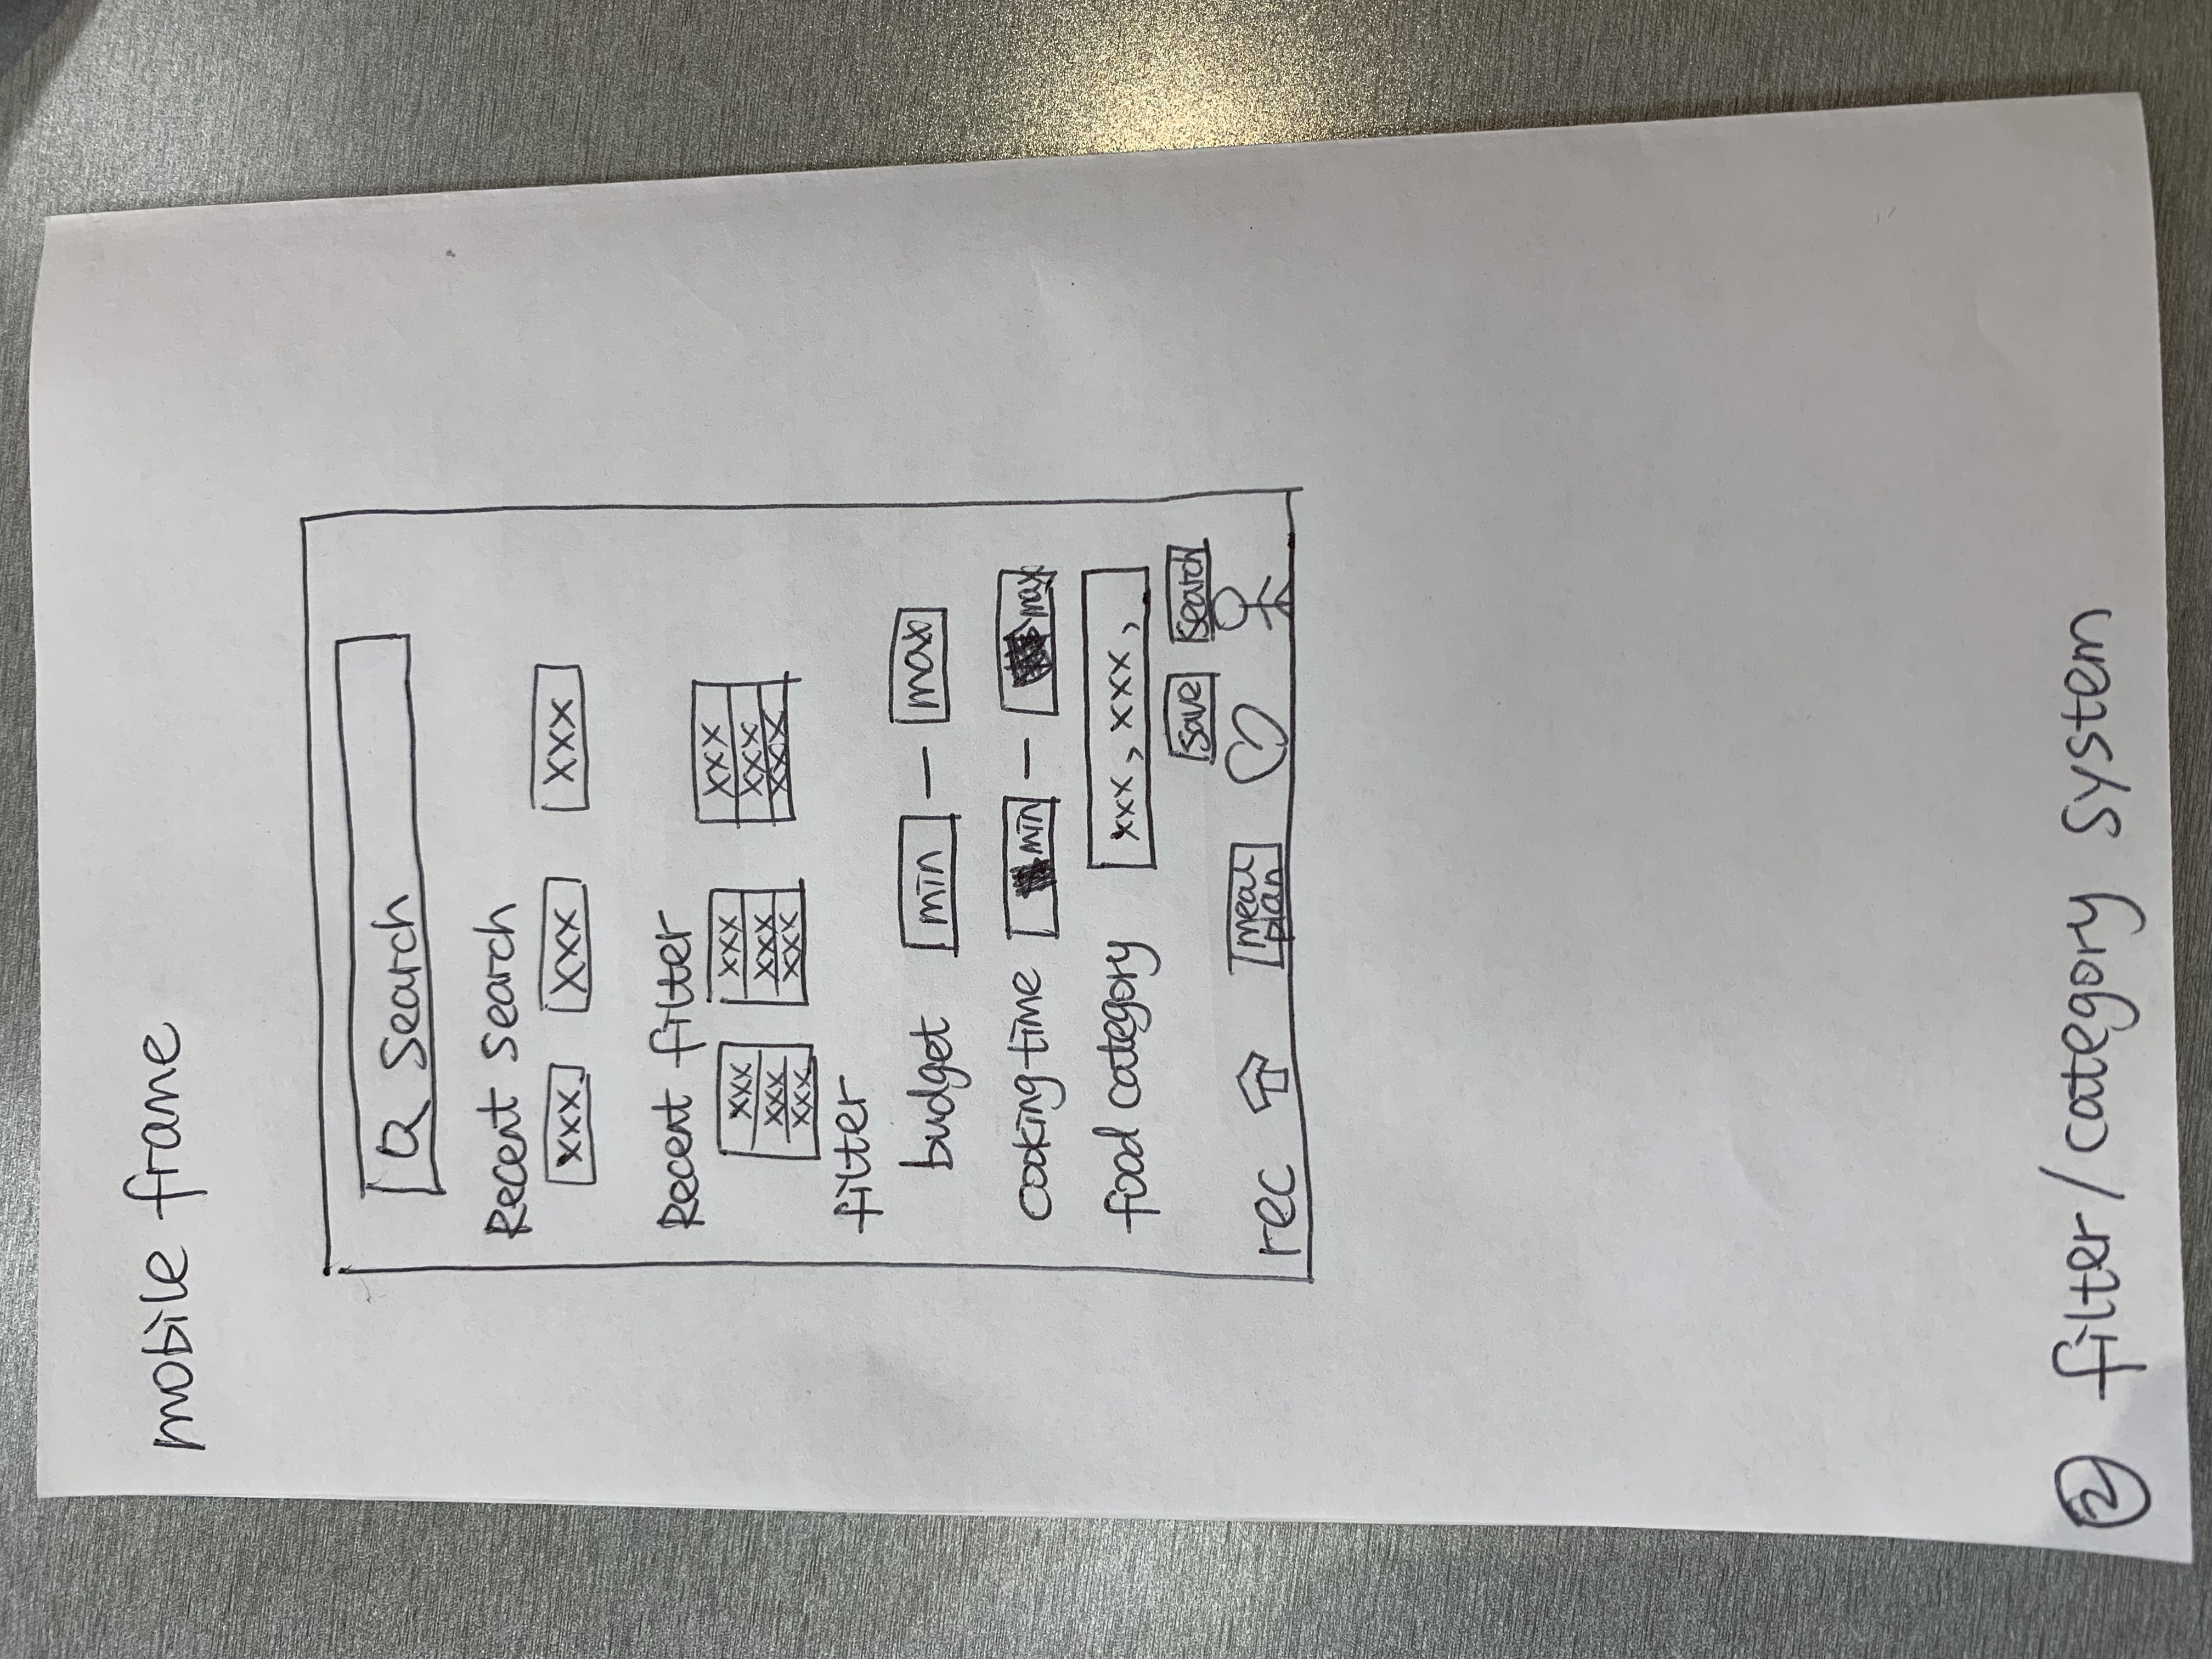 mobile frame
Search
Recent Search
xxx xxx xxx
Recent filter
xxx xxx xxx
xxx xxx xxx
xxx xxx xxx
filter
budget min — max
cooking time min — max
food category xxx, xxx,
save search
rec meal plan
② filter/category system